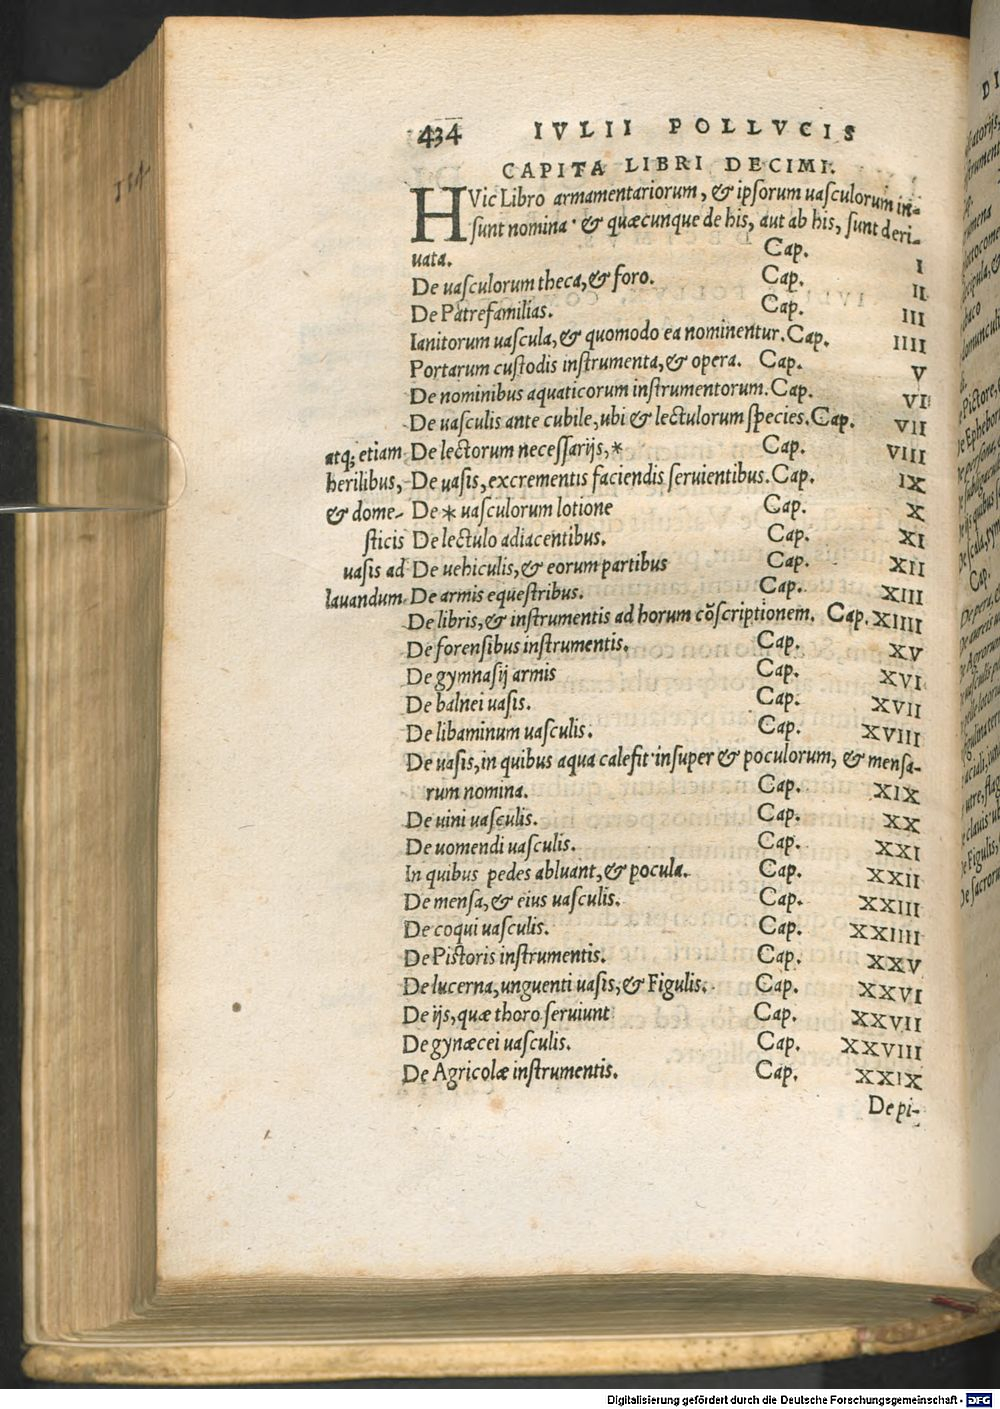 434 IVLII POLLVCIS
CAPITA LIBRI DECIMI.
HVic Libro armamentariorum, & ipsorum uasculorum in-
sunt nomina· & quæcunque de his, aut ab his, sunt deri-
uata. Cap. I
De uasculorum theca, & foro. Cap. II
De Patrefamilias. Cap. III
Ianitorum uascula, & quomodo ea nominentur. Cap. IIII
Portarum custodis instrumenta, & opera. Cap. V
De nominibus aquaticorum instrumentorum. Cap. VI
De uasculis ante cubile, ubi & lectulorum species. Cap. VII
De lectorum necessarijs, * Cap. VIII
De uasis, excrementis faciendis seruientibus. Cap. IX
De * uasculorum lotione Cap. X
De lectulo adiacentibus. Cap. XI
De uehiculis, & eorum partibus Cap. XII
De armis equestribus. Cap. XIII
De libris, & instrumentis ad horum cõscriptionem. Cap. XIIII
De forensibus instrumentis. Cap. XV
De gymnasij armis Cap. XVI
De balnei uasis. Cap. XVII
De libaminum uasculis. Cap. XVIII
De uasis, in quibus aqua calefit· insuper & poculorum, & mensa-
rum nomina. Cap. XIX
De uini uasculis. Cap. XX
De uomendi uasculis. Cap. XXI
In quibus pedes abluant, & pocula. Cap. XXII
De mensa, & eius uasculis. Cap. XXIII
De coqui uasculis. Cap. XXIIII
De Pistoris instrumentis. Cap. XXV
De lucerna, unguenti uasis, & Figulis. Cap. XXVI
De ijs, quæ thoro seruiunt Cap. XXVII
De gynæcei uasculis. Cap. XXVIII
De Agricolæ instrumentis. Cap. XXIX
De pi-
atq; etiam
herilibus,
& dome-
sticis
uasis ad
lauandum.
Digitalisierung gefördert durch die Deutsche Forschungsgemeinschaft - DFG